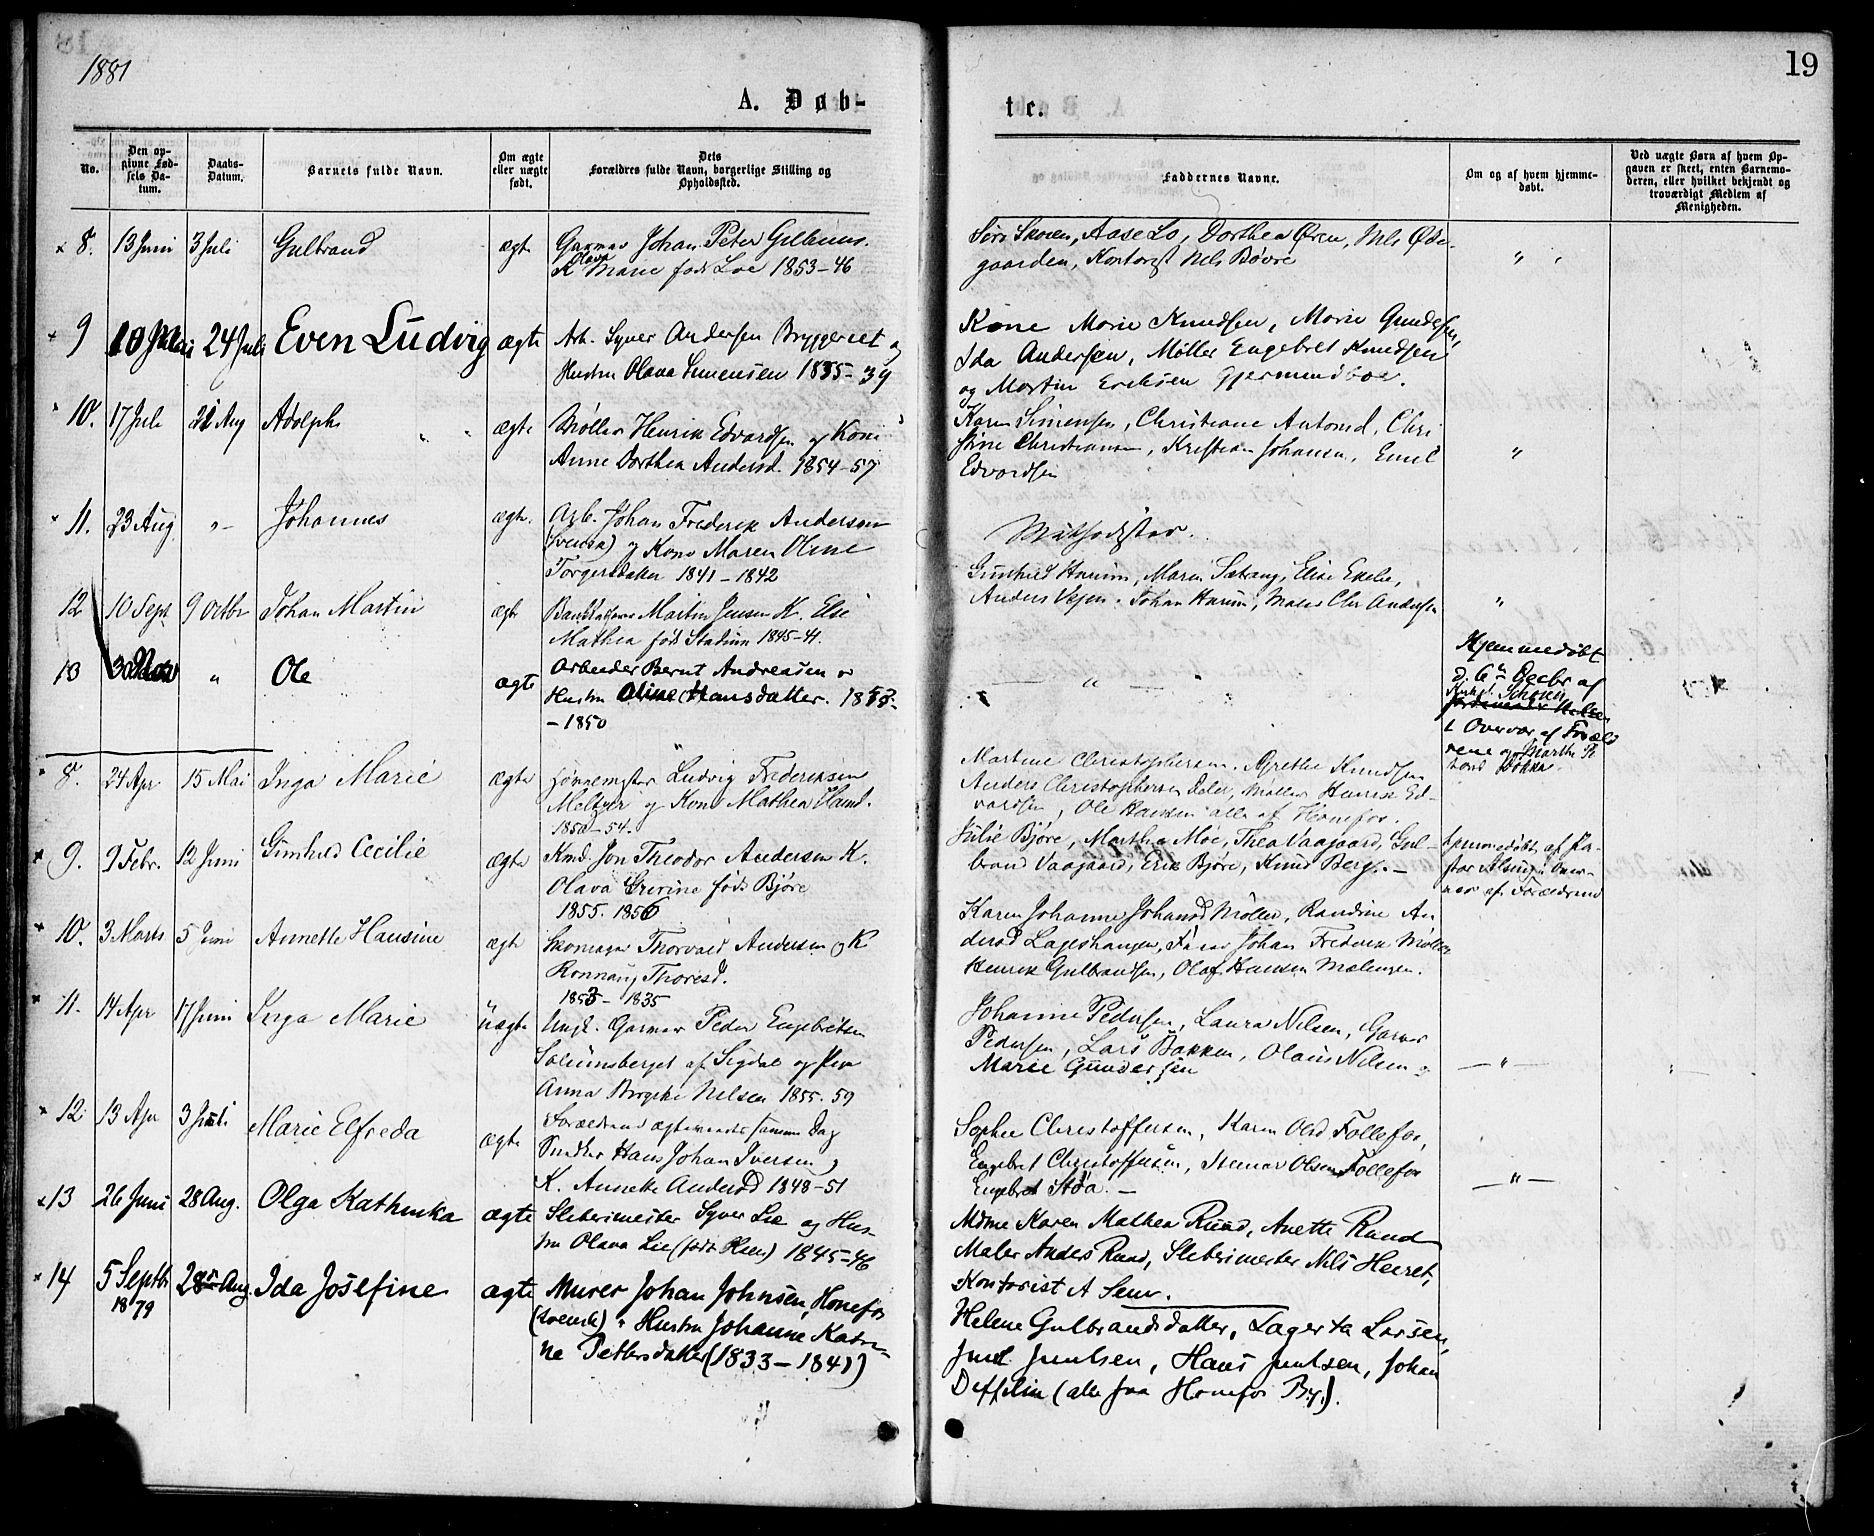 1881
19
A. Døb-
te.
No.
Den op-
givne Fød-
sels Da-
tum.
Daabs-
Datum.
Barnets fulde Navn.
Om ægte
eller uægte
født.
Dets
Forældres fulde Navn, borgerlige Stilling og
Opholdssted.
Faddernes Navne.
Om og af hvem hjemme-
døbt.
Ved uægte Børn af hvem Op-
gaven er skeet, enten Barnemo-
deren, eller hvilket bekjendt og
troværdigt Medlem af
Menigheden.
8. 13 Juni 3 Juli Gulbrand ægte Garver Johan Peter
K Olava Marie født Loe 1853-46
Siri Skoien, Aase Lo, Dorthea Øren, Nels Øde-
gaarden, Kontorist Nels Bøvre "
9 10 24 Juli Even Ludvig ægte Arb. Syver Andersen Bryggeriet og
Hustru Olava 1835-39
Kone Marie Knudsen, Marie Gundersen,
Ida Andersen, Møller Engebret Knudsen
og Martin Eriksen Gjermundboe.
10. 17 Juli 21 Aug Adolph ægte Møller Henrik Edvardsen og Kone
Anne Dorthea Andersd. 1854-57
Karen Simensen, Christiane Antonsd, Chri
stine Christiansen, Kristian Johansen, Emil
Edvardsen "
11. 23 Aug "- Johannes ægte. Arb. Johan Frederik Andersen
(Svensk) og Kone Maren Oline
Torgersdatter 1841-1842
Methodister.
12 10 Sept 9 Octbr Johan Martin ægte Martin Jensen K. Else
Mathea født 1845-41.
Gunhild Harum, Maren Sætrang, Elise
Anders Vejen, Johan Harum, Maler Chr Andersen "
13 " Ole ægte Arbeider Bernt Andreassen og
Hustru Oline Hansdatter. 1853-
-1850
— " —
Hjemmedøbt
d. 6te Decbr af
i Overvær af Foræld
rene og Marthe
8. 24 Apr 15 Mai Inga Marie ægte Ludvig Frederiksen
Meltzer og Kone Mathea Hansd.
1850-54.
Martine Christophersen, Grethe Knudsen
Anders Christophersen Møller Henrik Ed-
vardsen, Ole Hansen alle af Hønefos.
9. 9 Febr. 12 Juni Gunhild Cecilie ægte Kmd. Jon Theodor Andersen K.
Olava Grurine født Bjøre
1855. 1856
Julie Bjøre, Marthea Moe, Thea Vaagaard, Gul-
brand Vaagaard, Erik Bjøre, Knud Berg. —
hjemmedøbt af Pa-
stor i Over-
vær af Forældrene
10. 3 Marts 5 Juni Annette Hansine ægte Skomager Thorvald Andersen og K
Ronnaug Thoresd.
1853-1835
Karen Johanne Johansd Møller, Randine An
dersd Lageshaugen, Johan Frederik Møller
Henrik Gulbrandsen, Olaf Hansen
11. 14 Apr 17 Juni Inga Marie uægte Ungk. Garver Peder Engebretsen
af Sigdal og Pige
Anna Birgitte Nelsen 1855. 59
Johanne Pedersen, Laura Nilsen, Garver
Pedersen, Lars Bakken, Olaus Nilsen og
Marie Gundersen
— " —
12 13 Apr 3 Juli Marie Elfreda ægte Forældrene ægteviede samme Dag
Snedker Hans Johan Iversen og
K. Annette Andersd 1848-51
Sophie Christoffersen, Karen Olsd Follefos,
Engebret Christoffersen, Olsen Follefos
Engebret
— " —
13 26 Juni 28 Aug. Olga Kathinka ægte Sliberimester Syver Lie og Hus-
tru Olava Lie (født Hsen) 1845-46
Mdme Karen Mathea Ruud, Anette Ruud
Maler Anders Ruud, Sliberimester Nils Heiret,
Kontorist A Semr.
14 5 Septbr
1879 28 Aug. Ida Josefine ægte Murer Johan Johnsen, Hønefos
(svensk) og Hustru Johanne Katri-
ne Pettersdatter (1833-1841)
Helene Gulbrandsdatter, Lagerta Larsen,
Juul Juulsen, Hans Juulsen, Johan
Deffelin (alle fra Hønefos By).